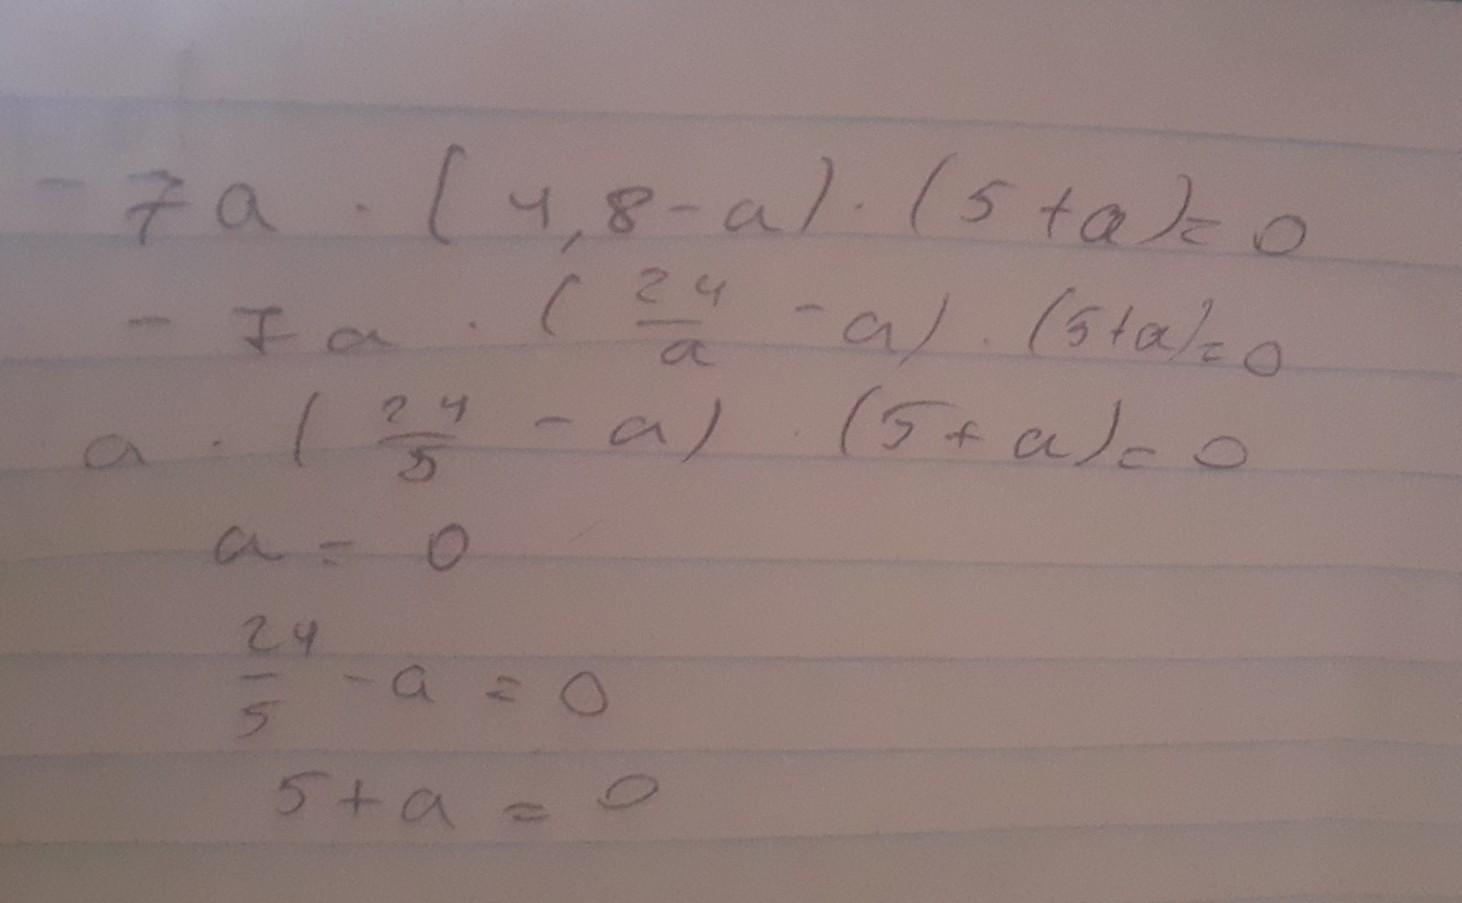 - 7a · (4,8 - a) · (5 + a) = 0
- 7a · (24/a - a) · (5+a) = 0
a · (24/5 - a) · (5 + a) = 0
a = 0
24/5 - a = 0
5 + a = 0